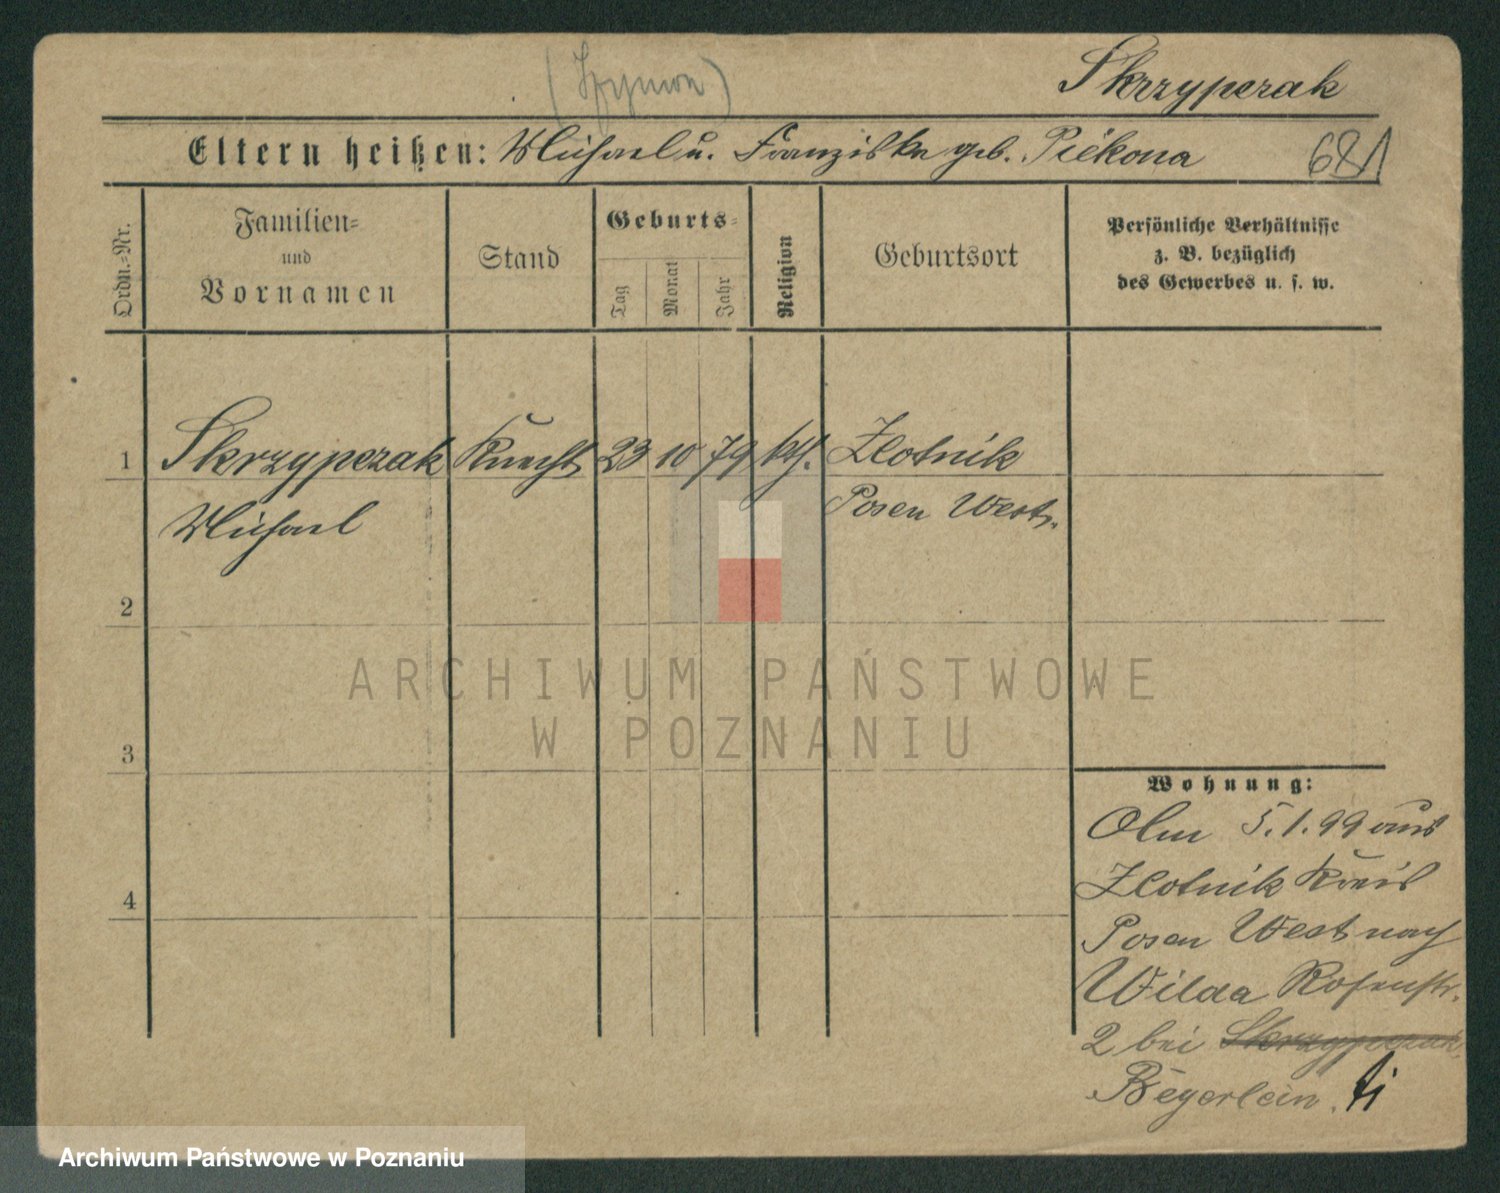 Skrzypczak
(Szymon)
Eltern heißen: Michael u. Franziska geb. Piékona
681
Ordn.-Nr.
Familien-
und
Vornamen
Stand
Geburts-
Tag
Monat
Jahr
Religion
Geburtsort
Persönliche Verhältnisse
z. B. bezüglich
des Gewerbes u. s. w.
1 Skrzypczak Knecht 23 10 79 kth. Zlotnik
Michael Posen Westr.
2
3
4
Wohnung:
5.1.99 aus
Zlotnik Kreis
Posen West nach
Wilda Rosenstr.
2 bei Skrzypczak
Beyerlein.
ARCHIWUM PAŃSTWOWE
W POZNANIU
Archiwum Państwowe w Poznaniu